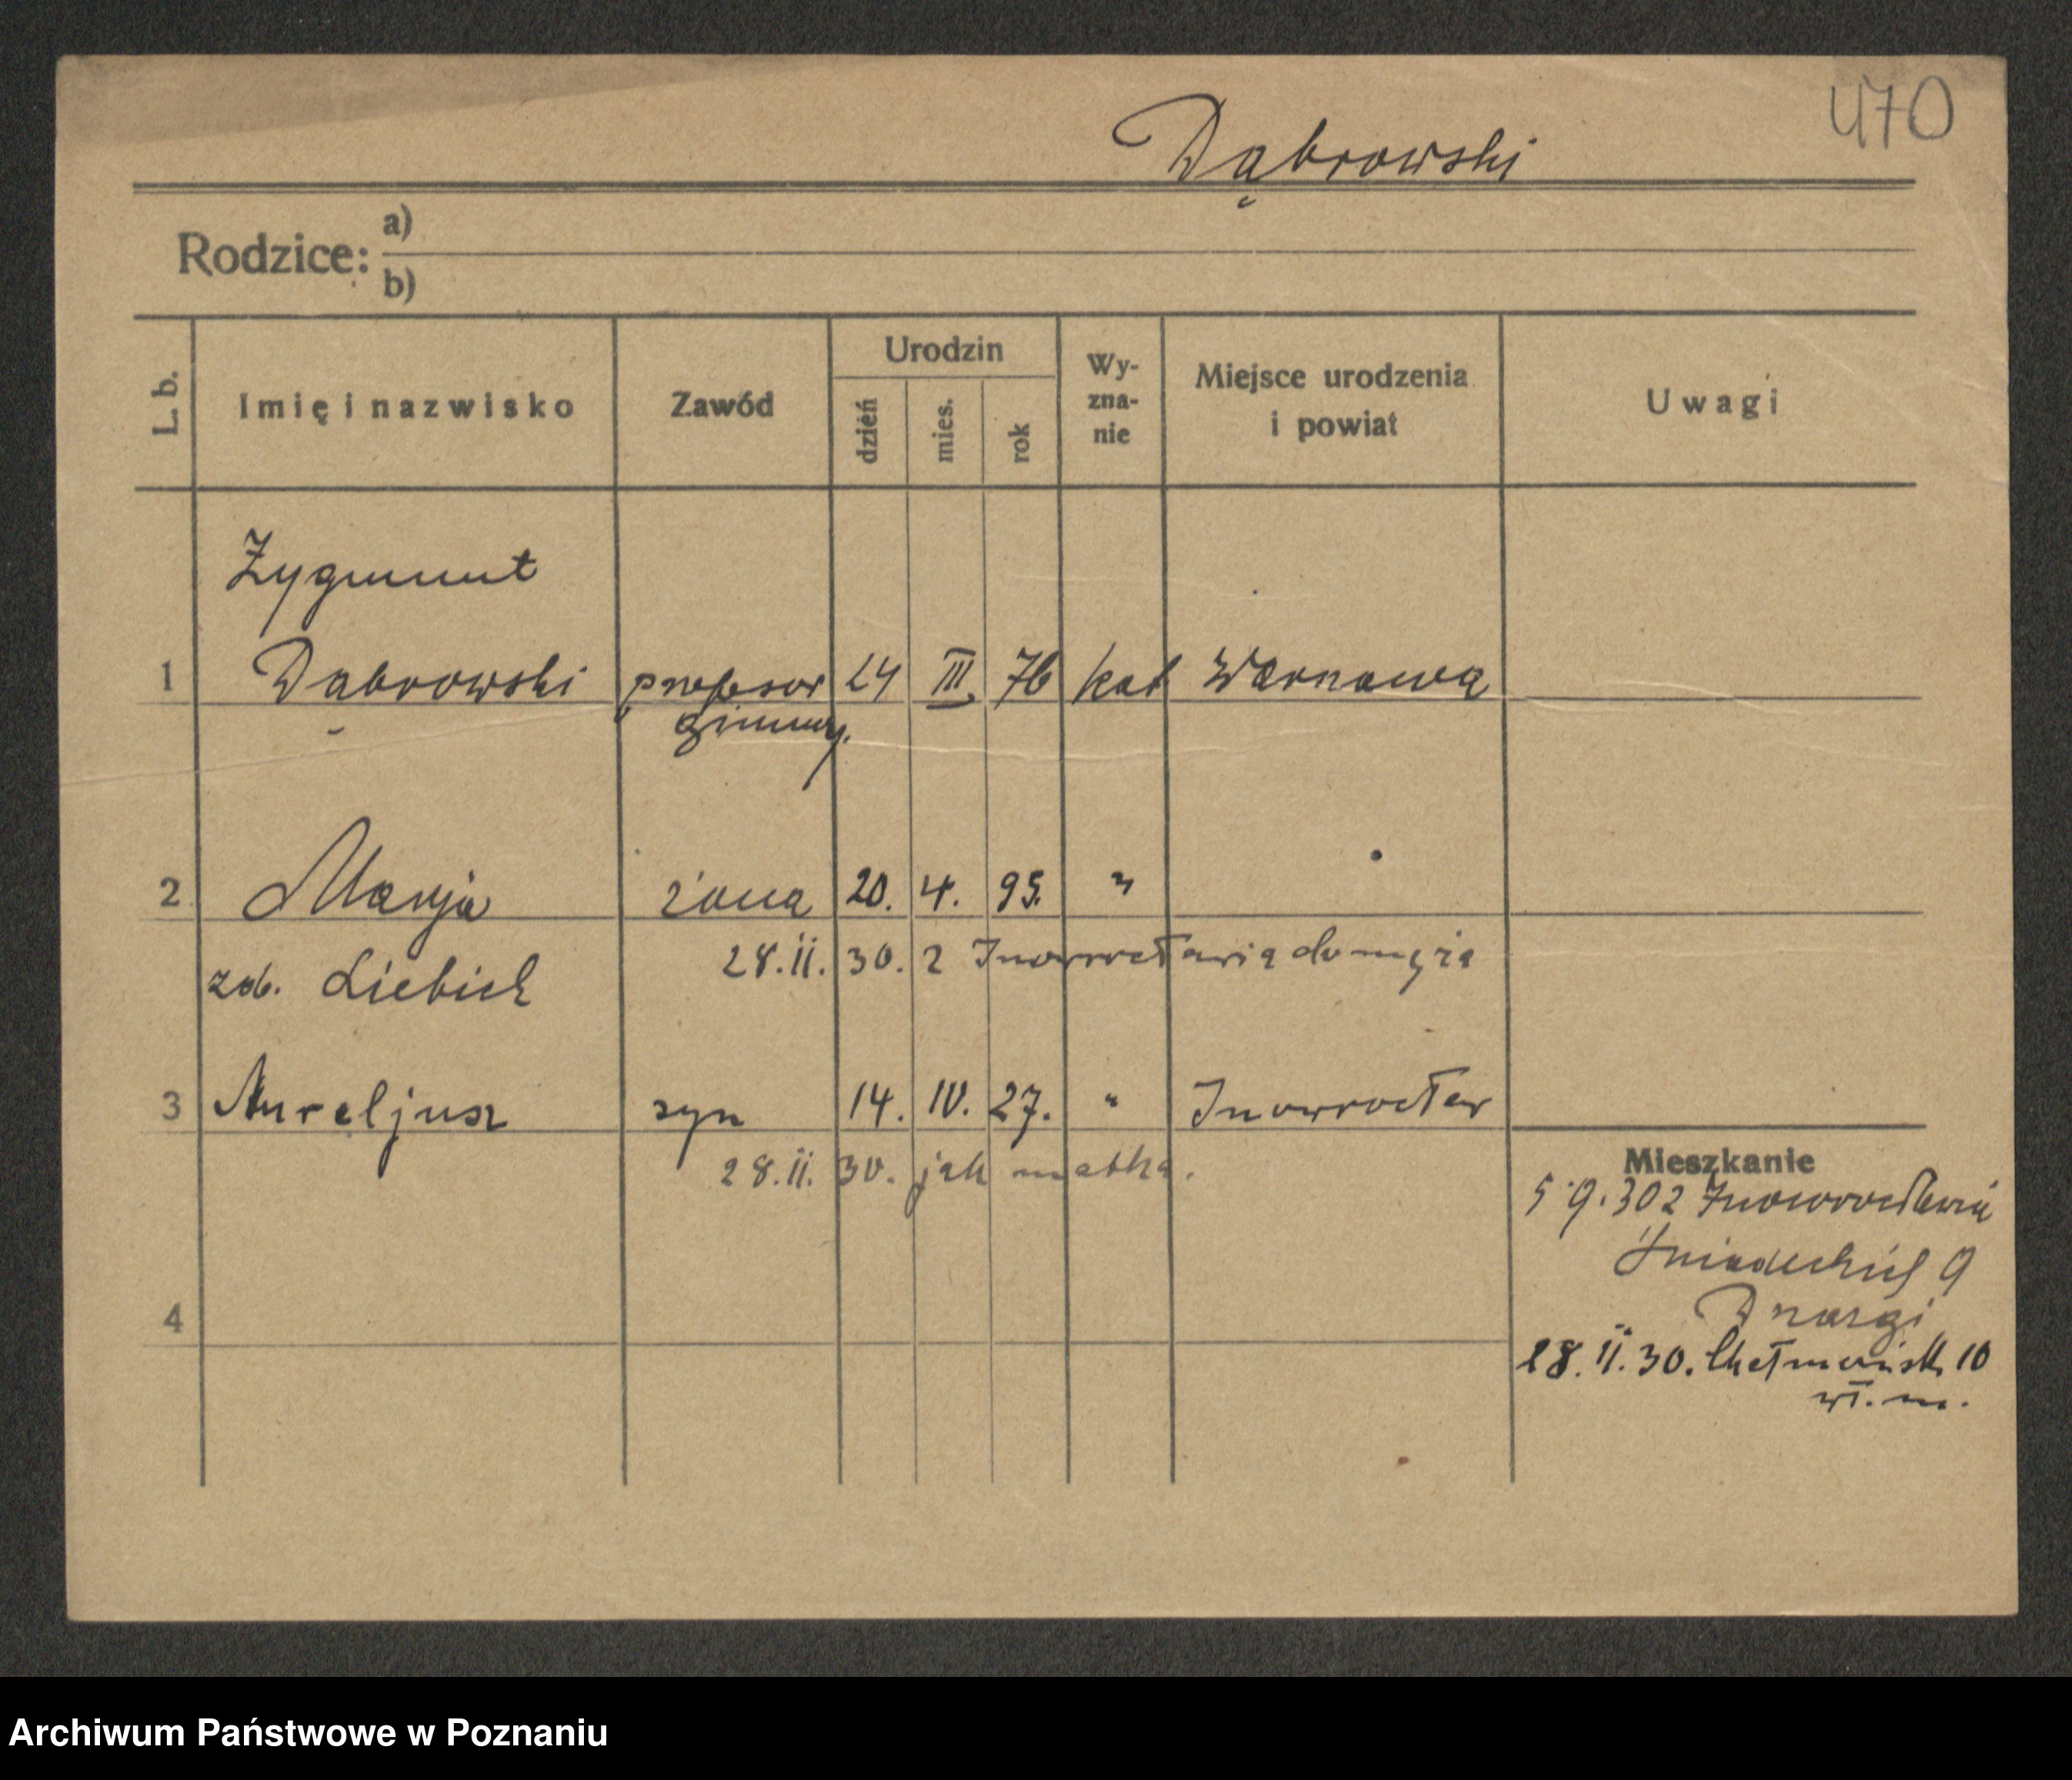 470
Dąbrowski
Rodzice: a)
b)
L. b. Imię i nazwisko Zawód Urodzin dzień mies. rok Wy-zna-nie Miejsce urodzenia i powiat Uwagi
Zygmunt
1 Dąbrowski profesor 24 III 76 kat Warszawa
gimnaz.
2 Marja żona 20. 4. 95. "
zd. Liebich 28.II.30. z Inowrocławia do męża
3 Aureljusz syn 14. IV. 27. " Inowrocław
28.II.30. jak matka.
Mieszkanie
5.9.30 z Inowrocławia
Śniadeckich 9
4
28.II.30. Chełmońsk. 10
wł. m.
Archiwum Państwowe w Poznaniu